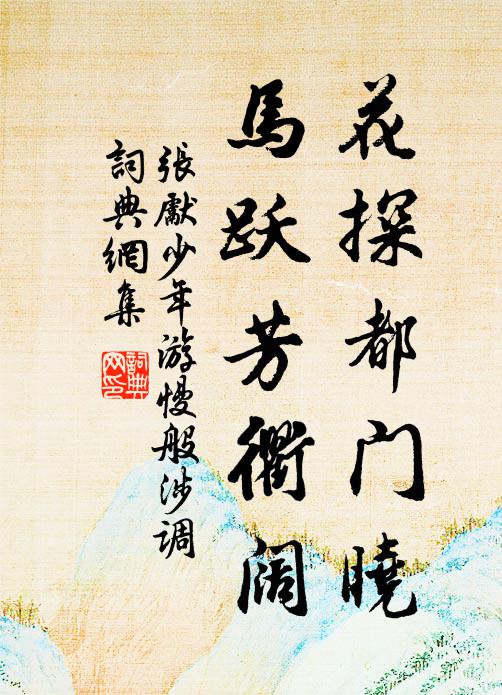 花探都门曉
馬跃芳衢阔
張獻少年游慢般涉调
詞典網集
詞典
网印